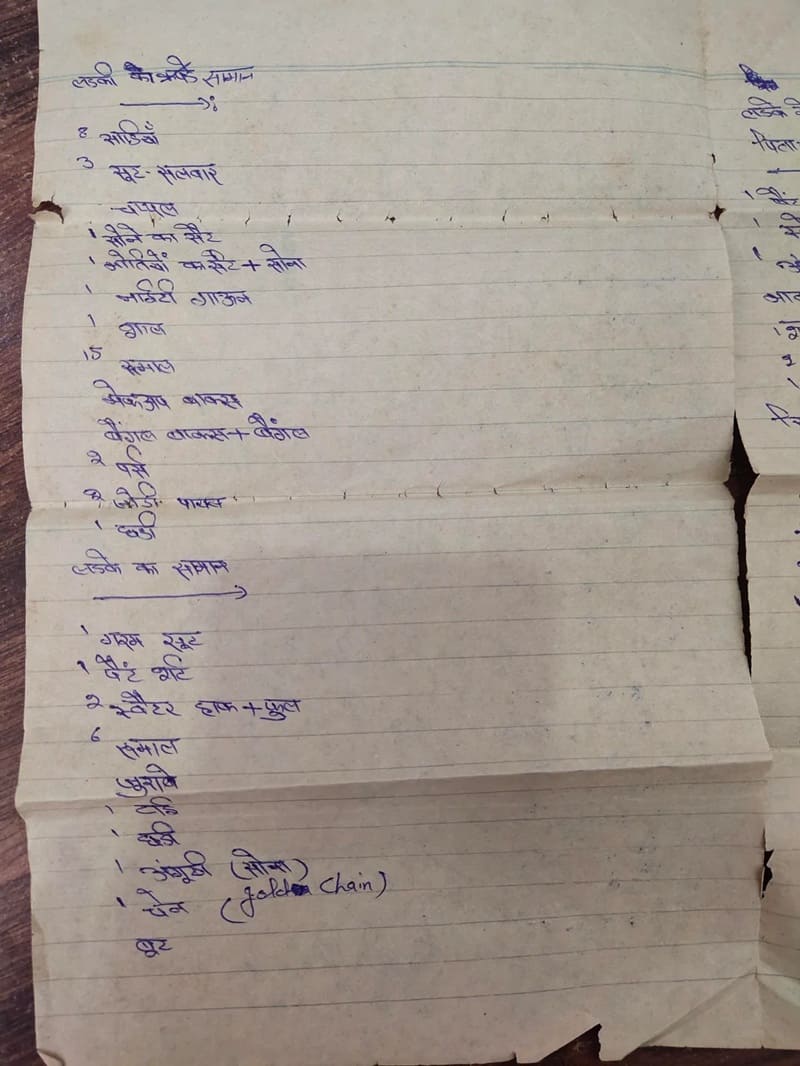 लडकी के कपड़े सामान
8 साडियाँ
3 सूट-सलवार
चप्पल
1 सोने का सैट
1 मोतियों का सैट + सोना
1 नाईटी गाऊन
1 शाल
15 रूमाल
मेकअप बाक्स
बैंगल बाक्स + बैंगल
2 पर्स
2 जोडी पायल
1 घडी
लडके का सामान
1 गरम सूट
1 पैंट शर्ट
2 स्वैटर हाफ + फुल
6 रूमाल
जुराबे
1 टाई
1 घडी
1 अंगूठी (सोना)
1 चेन (gold Chain)
बूट
लडके के
पिता